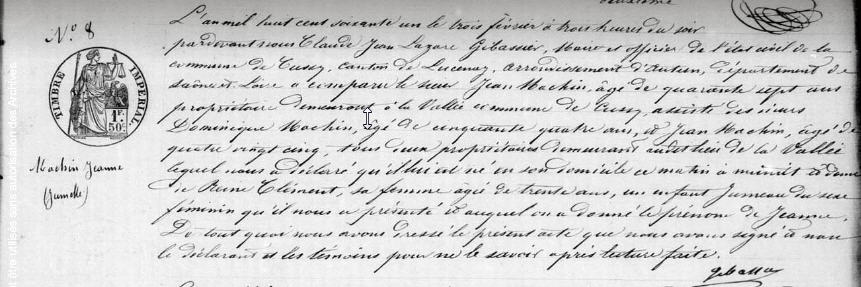 N° 8
TIMBRE IMPÉRIAL
1F.
50c.
Machin Jeanne
(Jumelle)
L'an mil huit cent soixante un le trois février à trois heures du soir
pardevant nous Claude Jean Lazare Gebassier, Maire et officier de l'état civil de la
commune de Cussy, canton de Lucenay, arrondissement d'Autun, département de
Saône et Loire a comparu le sieur Jean Machin, âgé de quarante sept ans
propriétaire demeurant à la Vallée commune de Cussy, assisté des sieurs
Dominique Machin, âgé de cinquante quatre ans, et Jean Machin, âgé de
quatre vingt cinq, tous deux propriétaires demeurant audit lieu de la Vallée
lequel nous a déclaré, qu'il lui est né en son domicile ce matin à minuit et demi
de Reine Clément, sa femme âgée de trente ans, un enfant Jumeau du sexe
féminin qu'il nous a présenté et auquel on a donné le prénom de Jeanne.
De tout quoi nous avons dressé le présent acte que nous avons signé à non
le déclarant et les témoins pour ne le savoir après lecture faite.
Gebassier
être utilisés sans autorisation des Archives